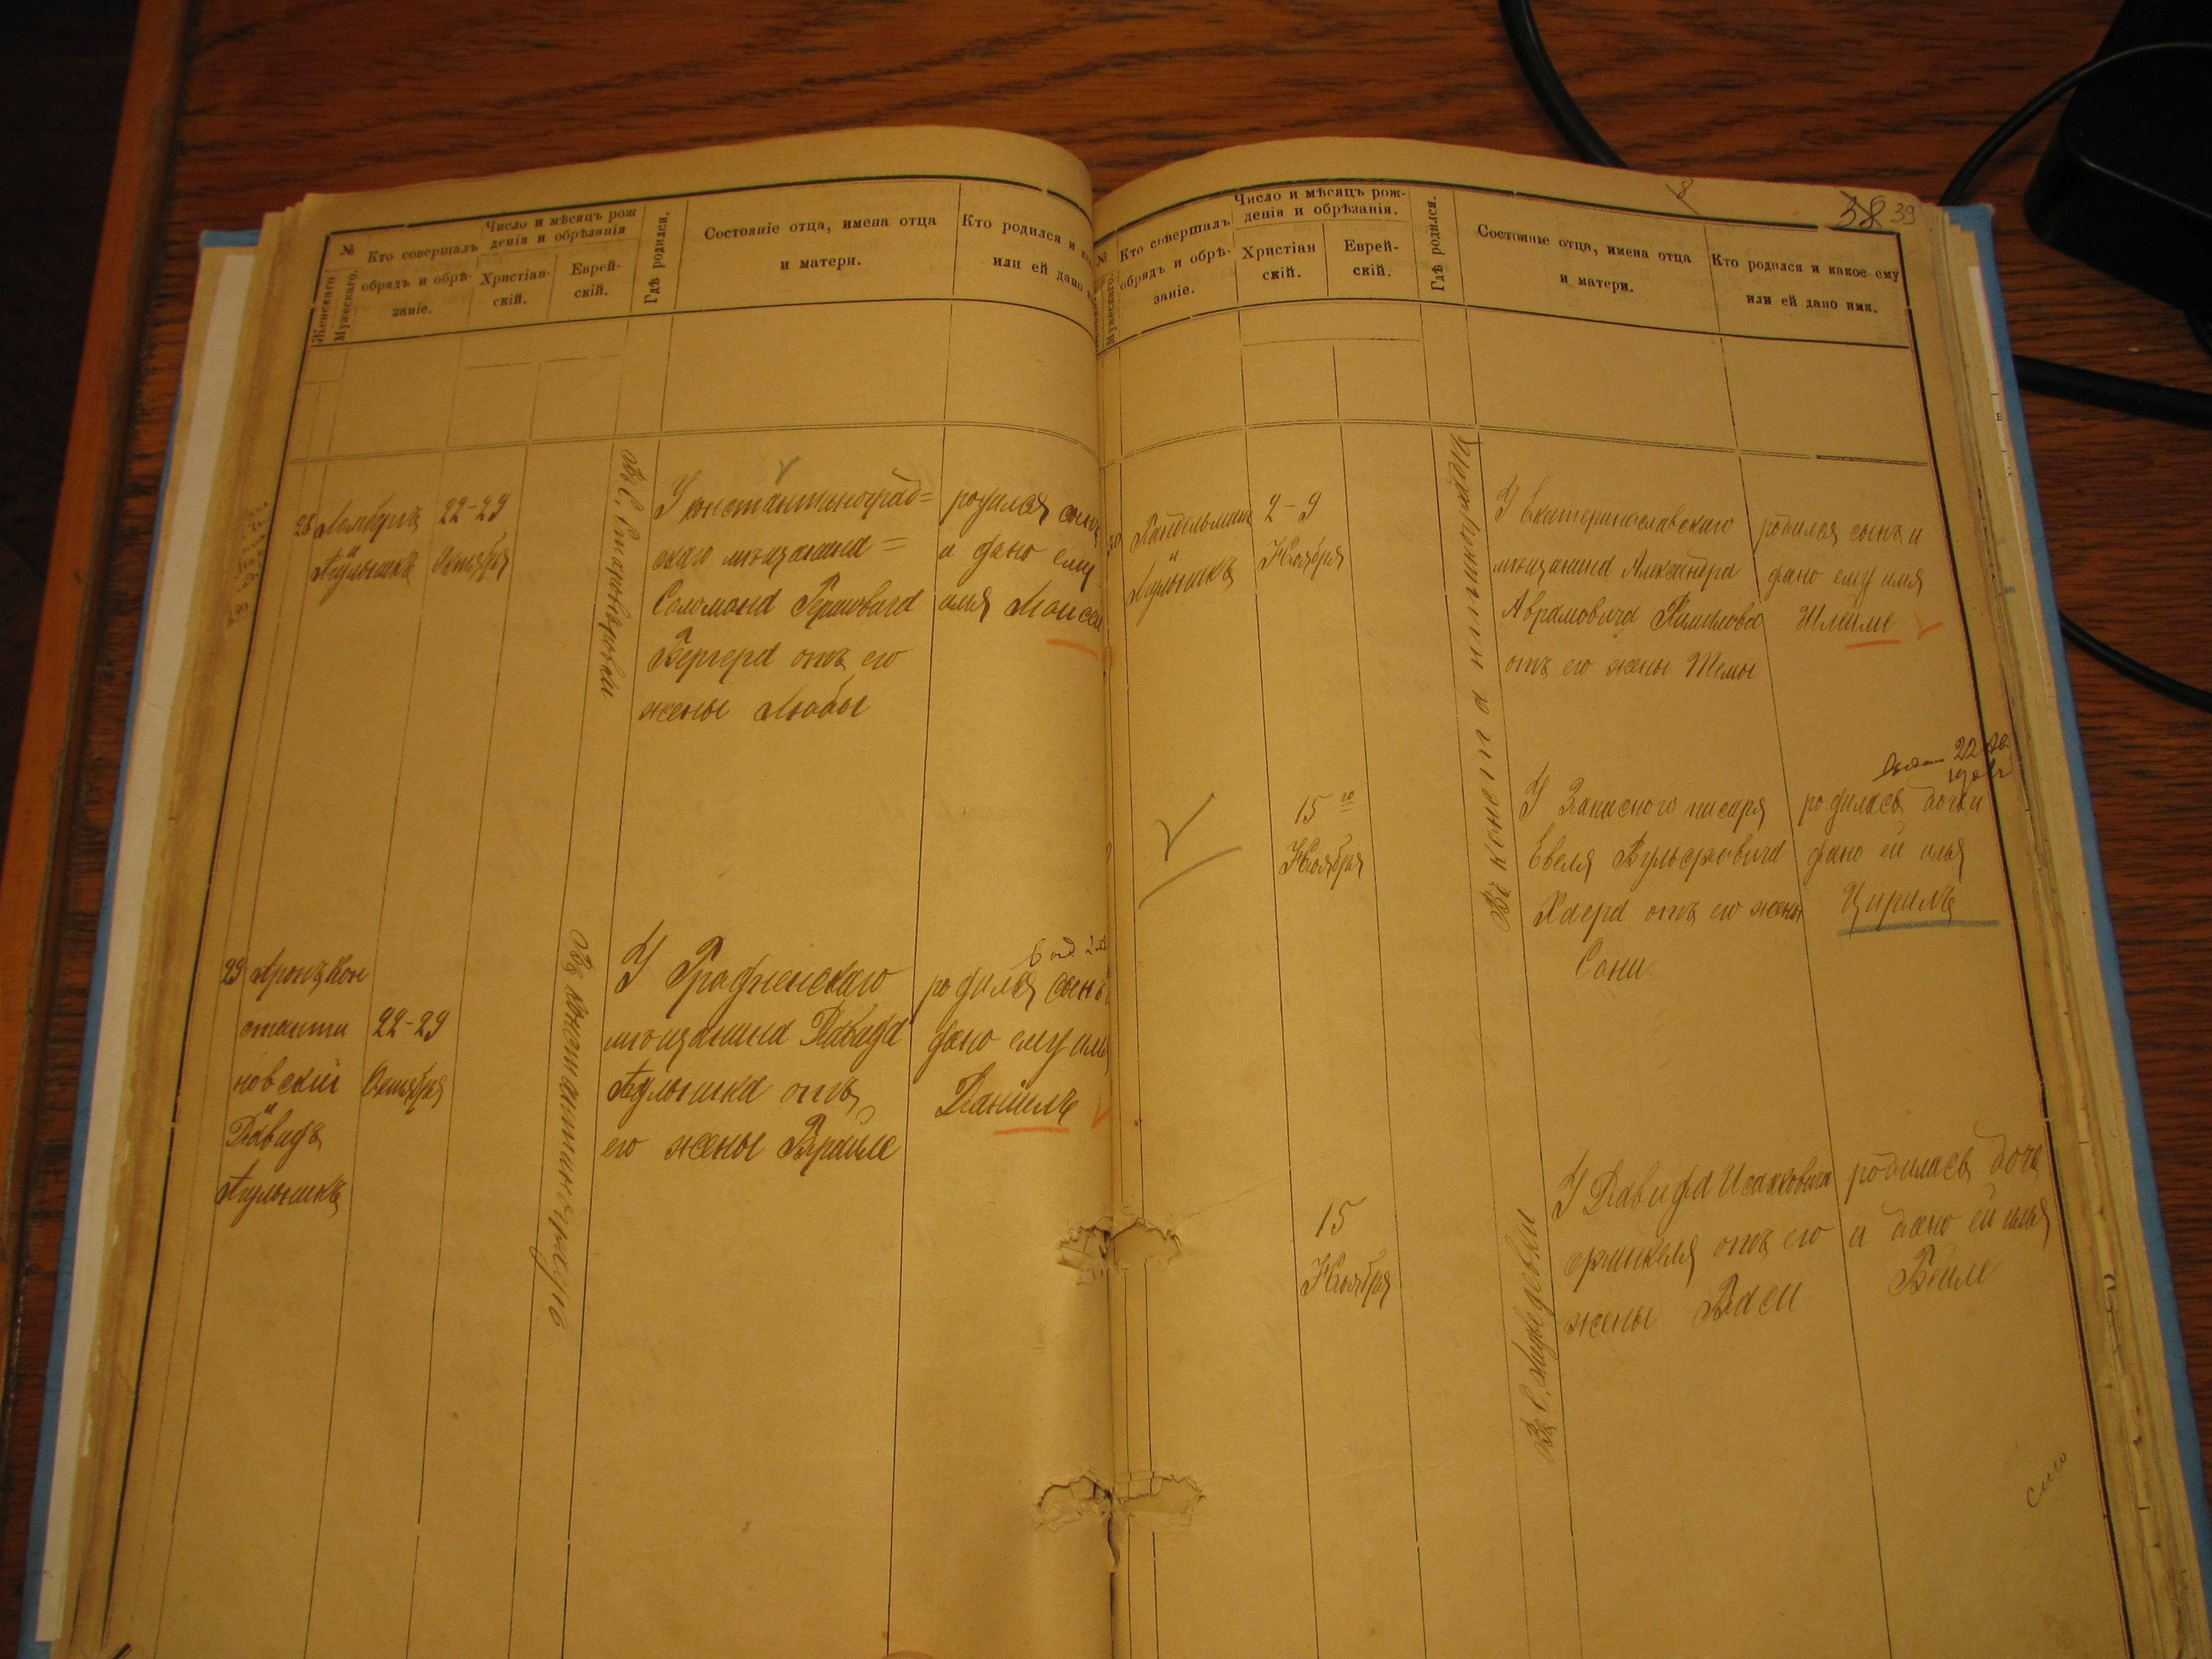 №
Женскаго.
Мужескаго.
Кто совершалъ
обрядъ и обрѣ-
заніе.
Число и мѣсяцъ рож
денія и обрѣзанія
Христіан-
скій.
Еврей-
скій.
Гдѣ родился.
Состояніе отца, имена отца
и матери.
Кто родился и
или ей дано
28
22-29
Октября
У константиноград=
скаго мѣщанина=
Соломона Гершовича
Бергера отъ его
жены Любы
родился сынъ
и дано ему
имя Моисей
29 Аронъ Кон
станти
новскій
и
Давидъ
22-29
Октября
Въ константиноградѣ
У
мѣщанина Давида
отъ
его жены
родился сынъ
дано ему имя
Даніилъ
38 39
№
Мужескаго.
Кто совершалъ
обрядъ и обрѣ-
заніе.
Число и мѣсяцъ рож-
денія и обрѣзанія.
Христіан
скій.
Еврей-
скій.
Гдѣ родился.
Состояніе отца, имена отца
и матери.
Кто родился и какое ему
или ей дано имя.
30
и
2-9
Ноября
Въ константиноградѣ
У Екатеринославскаго
мѣщанина Александра
Абрамовича
отъ его жены Темы
родился сынъ и
дано ему имя
Шлеме
15 го
Ноября
У Запаснаго писаря
Евеля Вульфовича
отъ его жены
Сони
22
родилась дочь и
дано ей имя
Цирилъ
15
Ноября
У Давида Исааковича
Финкеля отъ его
жены Баси
родилась дочь
и дано ей имя
Бейле